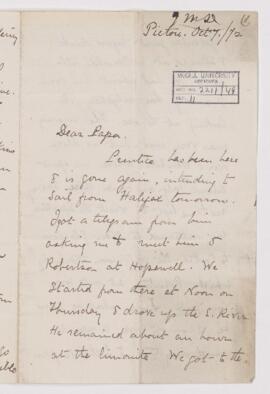 Pictou. Oct 7/72
McGILL UNIVERSITY
ARCHIVES
ACC. NO. 2211/48
REF. 11
Dear Papa.
Prentice has been here
& is gone again, intending to
Sail from Halifax tomorrow.
I got a telegram from him
asking me to meet him &
Robertson at Hopewell. We
Started from there at Noon on
Thursday & drove up the E. River
He remained about an hour
at the limonite We got to the